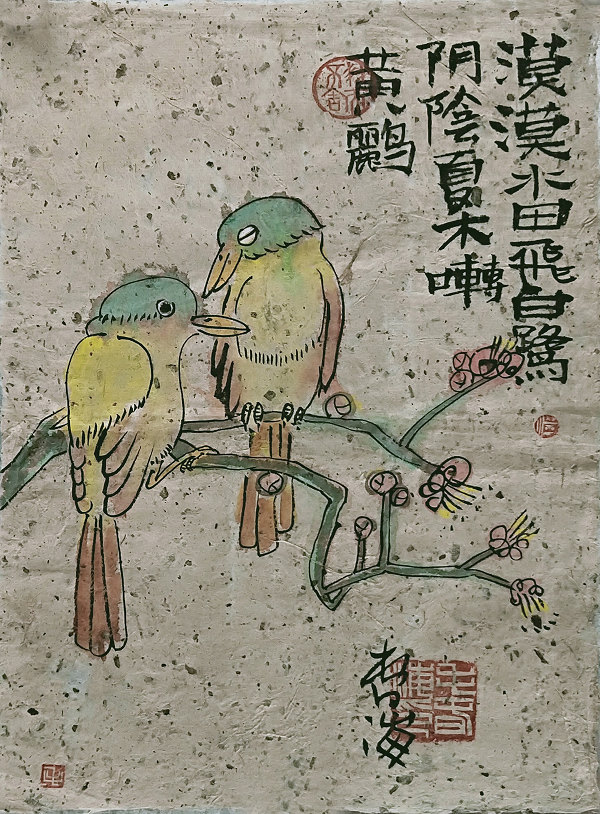 漠漠水田飛白鷺
阴陰夏木囀
黄鸝
海